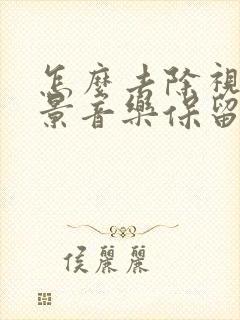 怎麼去除視
景音樂保留
侯麗麗